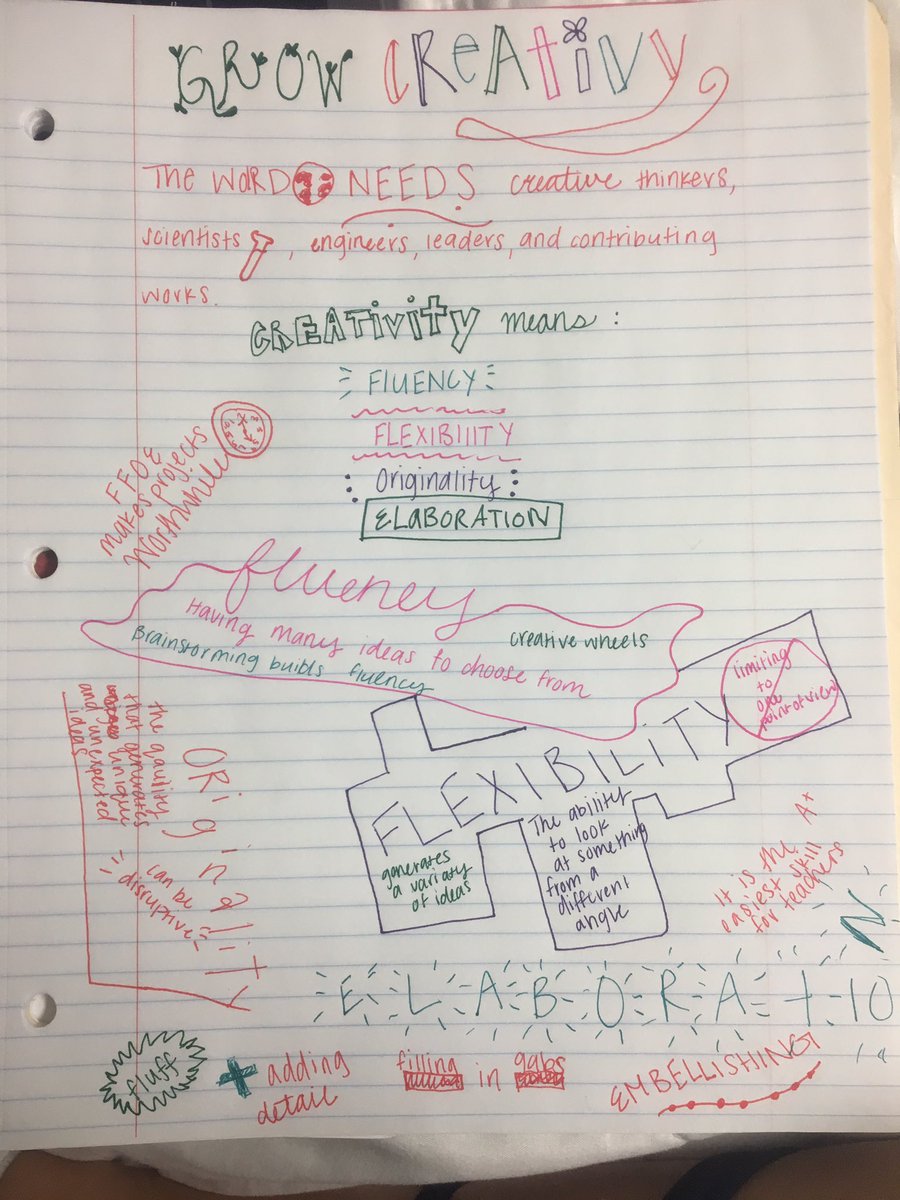 GROW CREATIVY
THE WORD NEEDS creative thinkers,
scientists, engineers, leaders, and contributing
works.
CREATIVITY means :
FLUENCY
FLEXIBILITY
Originality
ELABORATION
FFOE
makes projects
worthwhile
fluency
Having many ideas to choose from
creative wheels
Brainstorming builds fluency
FLEXIBILITY
limiting
to
one
point of view
generates
a variaty
of ideas
The ability
to look
at something
from a
different
angle
ORiginaliTy
the quality
that generates
unique
and unexpected
ideas
can be
disruptive
It is the
easiest skill
for teachers
A+
ELABORATION
fluff
+ adding
detail
filling in gabs
EMBELLISHING